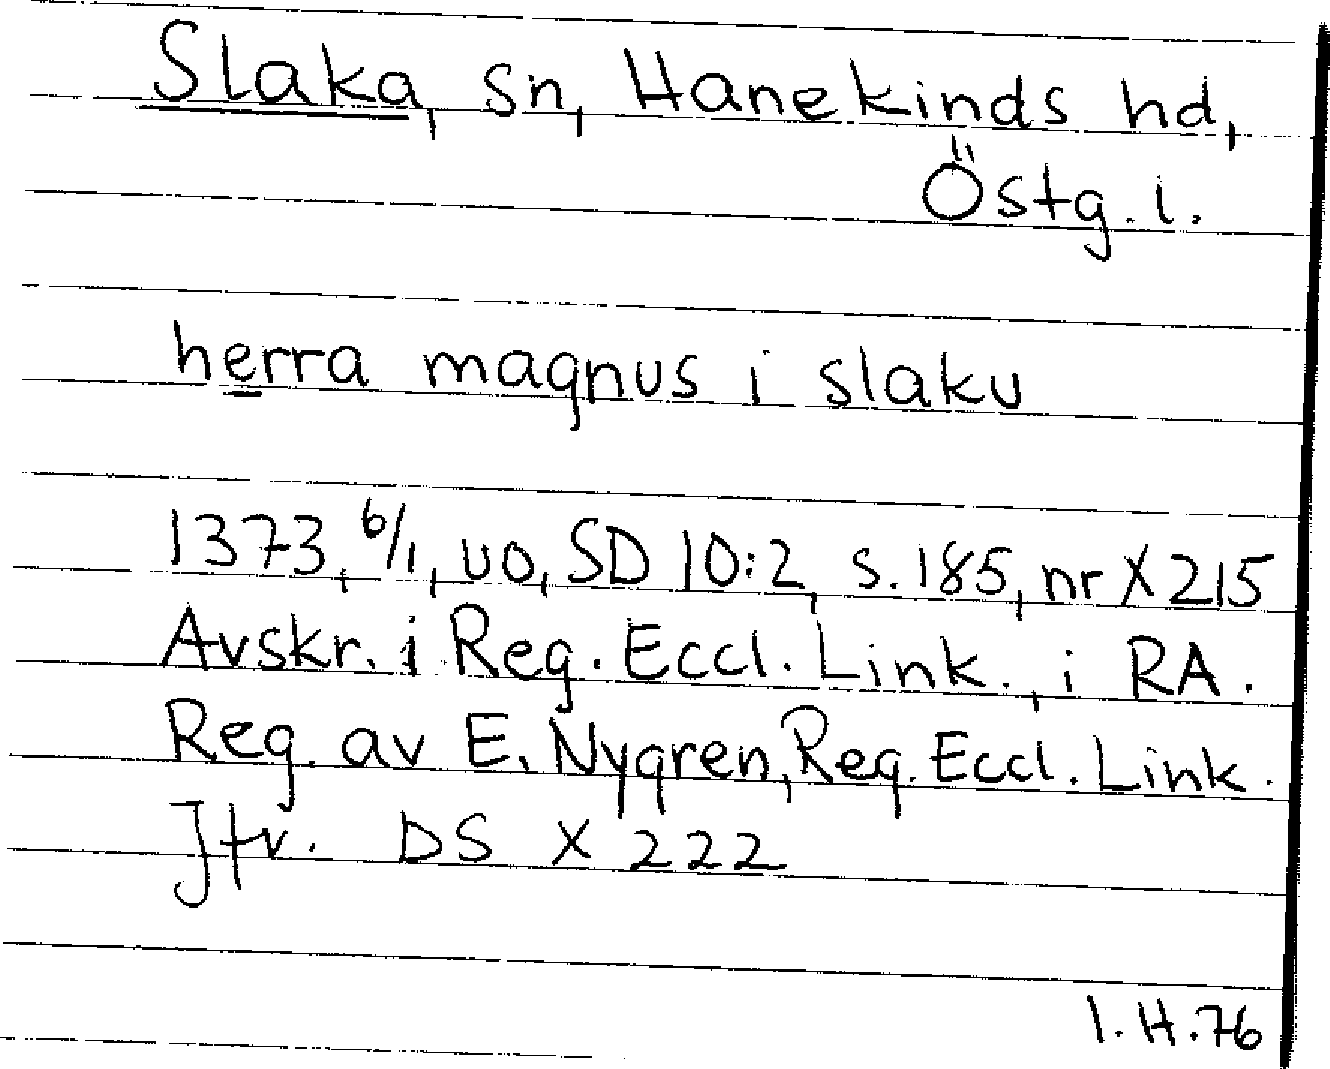 Slaka, sn, Hanekinds hd,
Östg. l.
herra magnus i slaku
1373, 6/1, uo, SD 10:2, s. 185, nr X 215
Avskr. i Reg. Eccl. Link., i RA.
Reg. av E. Nygren, Reg. Eccl. Link.
Jfr. DS X 222
I.H.76